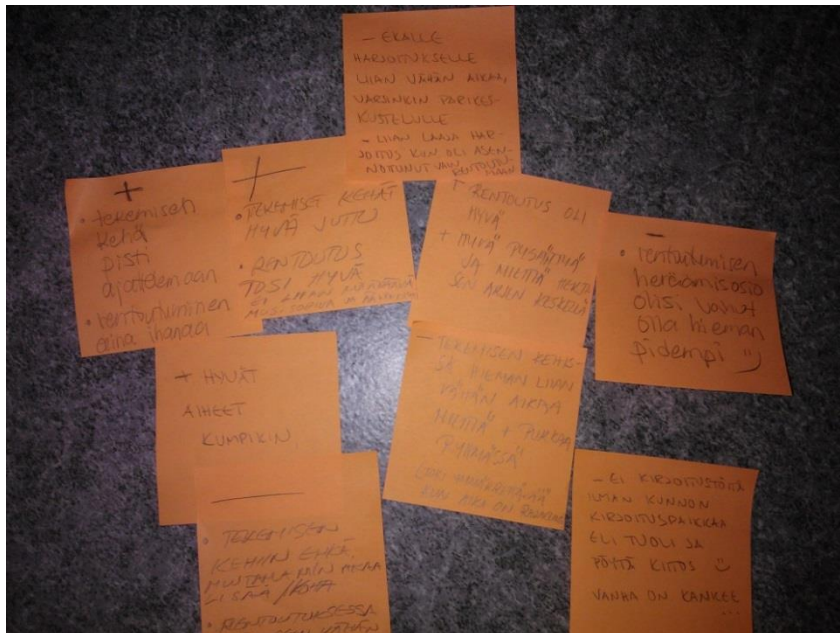 - EKALLE
HARJOITUKSELLE
LIIAN VÄHÄN AIKAA,
VARSINKIN PARIKES-
KUSTELULLE
- LIIAN LAAJA HAR-
JOITUS KUN OLI ASEN-
NOITUNUT VAIN RENTOUTU-
MAAN
+
• tekemisen
kehä
pisti
ajattelemaan
• rentoutuminen
aina ihanaa
+
• TEKEMISEN KEHÄT
HYVÄ JUTTU
• RENTOUTUS
TOSI HYVÄ
EI LIIAN
MUSIIKKIA JA
+ RENTOUTUS OLI
HYVÄ
+ HYVÄ PYSÄHTYÄ
JA MIETTIÄ
ARJEN KESKELLÄ
-
• rentoutumisen
heräämisosio
olisi voinut
olla hieman
pidempi :)
+ HYVÄT
AIHEET
KUMPIKIN
- TEKEMISEN KEHIS-
SÄ HIEMAN LIIAN
VÄHÄN AIKAA
MIETTIÄ + PURKAA
RYHMÄSSÄ
KUN AIKA ON
-
• TEKEMISEN
KEHIIN EHKÄ
AIKAA
LISÄÄ
• RENTOUTUKSESSA
VÄHÄN
- EI KIRJOITUSTÖITÄ
ILMAN KUNNON
KIRJOITUSPAIKKAA
ELI TUOLI JA
PÖYTÄ KIITOS :)
VANHA ON KANKEE
...